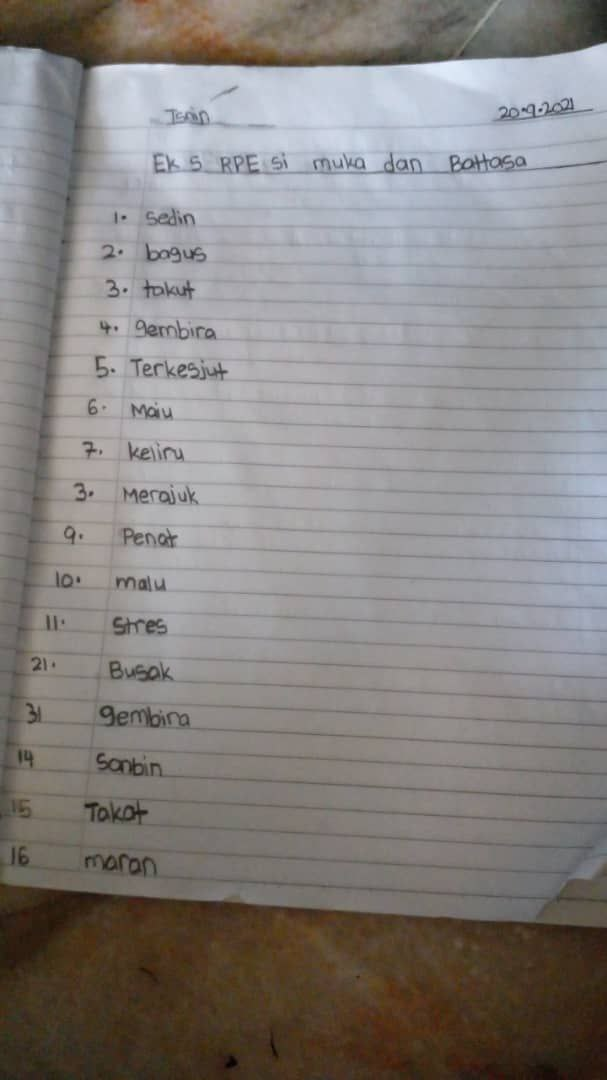 Isnin
20.9.2021
Ek 5 RPE si muka dan Battasa
1. sedin
2. bagus
3. takut
4. gembira
5. Terkesjut
6. Maiu
7. keliru
3. Merajuk
9. Penat
10. malu
11. Stres
21. Busak
31 gembira
14 Sonbin
15 Takot
16 maran